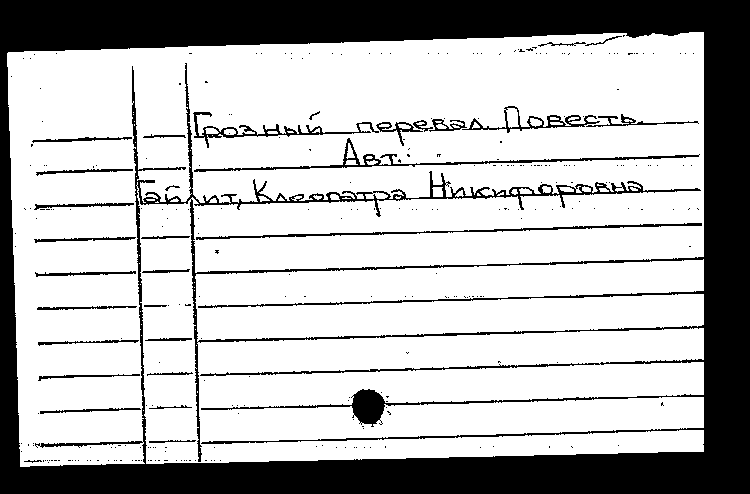 Грозный перевал. Повесть.
Авт.:
Гайлит, Клеопатра Никифоровна